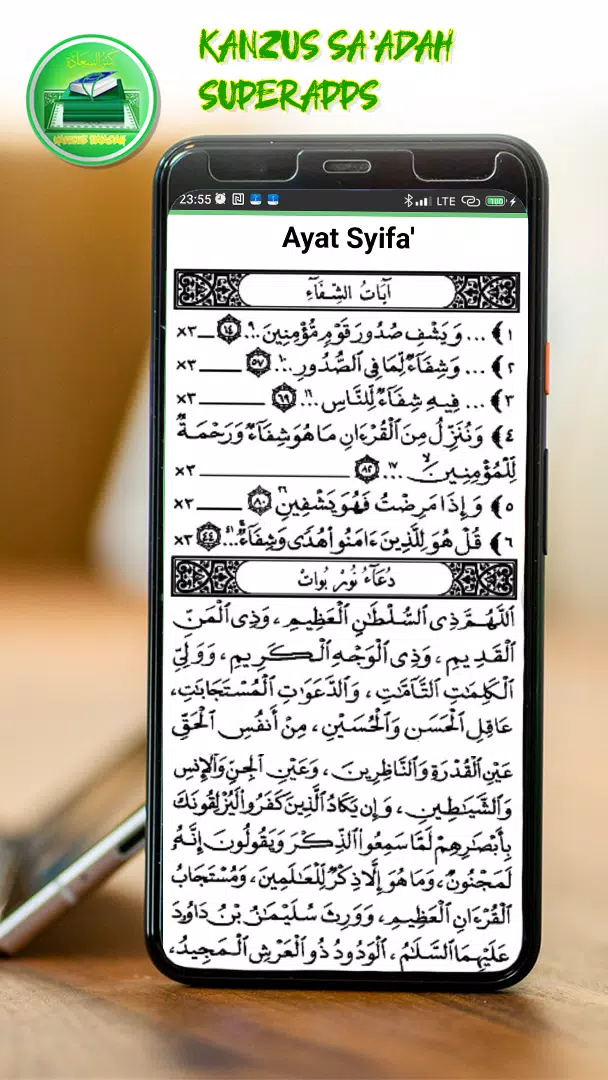 KANZUS SA'ADAH
SUPERAPPS
كنز السعادة
KANZUS SA'ADAH
23:55
LTE
100
Ayat Syifa'
آيَاتُ الشِّفَآءِ
١﴾ ... وَيَشْفِ صُدُورَ قَوْمٍ مُّؤْمِنِينَ ۰.. ١٤ ــــ ×٣
٢﴾ ... وَشِفَآءٌ لِّمَا فِى ٱلصُّدُورِ ١٠.. ٥٧ ــــ ×٣
٣﴾ ... فِيهِ شِفَآءٌ لِّلنَّاسِ ١٦... ٦٩ ــــ ×٣
٤﴾ وَنُنَزِّلُ مِنَ ٱلْقُرْءَانِ مَا هُوَ شِفَآءٌ وَرَحْمَةٌ
لِّلْمُؤْمِنِينَ ۙ ١٧... ٨٢ ــــ ×٣
٥﴾ وَإِذَا مَرِضْتُ فَهُوَ يَشْفِينِ ٢٦ ٨٠ ــــ ×٣
٦﴾ قُلْ هُوَ لِلَّذِينَ ءَامَنُوا۟ هُدًى وَشِفَآءٌ ۚ ٤١... ٤٤ ×٣
دُعَآءُ نُوْرْ بُوَاتْ
اَللّٰهُمَّ ذِى ٱلسُّلْطَانِ ٱلْعَظِيمِ، وَذِى ٱلْمَنِّ
ٱلْقَدِيمِ، وَذِى ٱلْوَجْهِ ٱلْكَرِيمِ، وَوَلِيِّ
ٱلْكَلِمَاتِ ٱلتَّآمَّاتِ، وَٱلدَّعَوَاتِ ٱلْمُسْتَجَابَاتِ،
عَاقِلِ ٱلْحَسَنِ وَٱلْحُسَيْنِ، مِنْ أَنْفُسِ ٱلْحَقِّ
عَيْنِ ٱلْقُدْرَةِ وَٱلنَّاظِرِينَ، وَعَيْنِ ٱلْجِنِّ وَٱلْإِنْسِ
وَٱلشَّيَاطِينِ، وَإِن يَكَادُ ٱلَّذِينَ كَفَرُوا۟ لَيُزْلِقُونَكَ
بِأَبْصَارِهِمْ لَمَّا سَمِعُوا۟ ٱلذِّكْرَ وَيَقُولُونَ إِنَّهُۥ
لَمَجْنُونٌ، وَمَا هُوَ إِلَّا ذِكْرٌ لِّلْعَالَمِينَ، وَمُسْتَجَابُ
ٱلْقُرْءَانِ ٱلْعَظِيمِ، وَوَرِثَ سُلَيْمَانُ بْنُ دَاوُدَ
عَلَيْهِمَا ٱلسَّلَامُ، ٱلْوَدُودُ ذُو ٱلْعَرْشِ ٱلْمَجِيدُ،